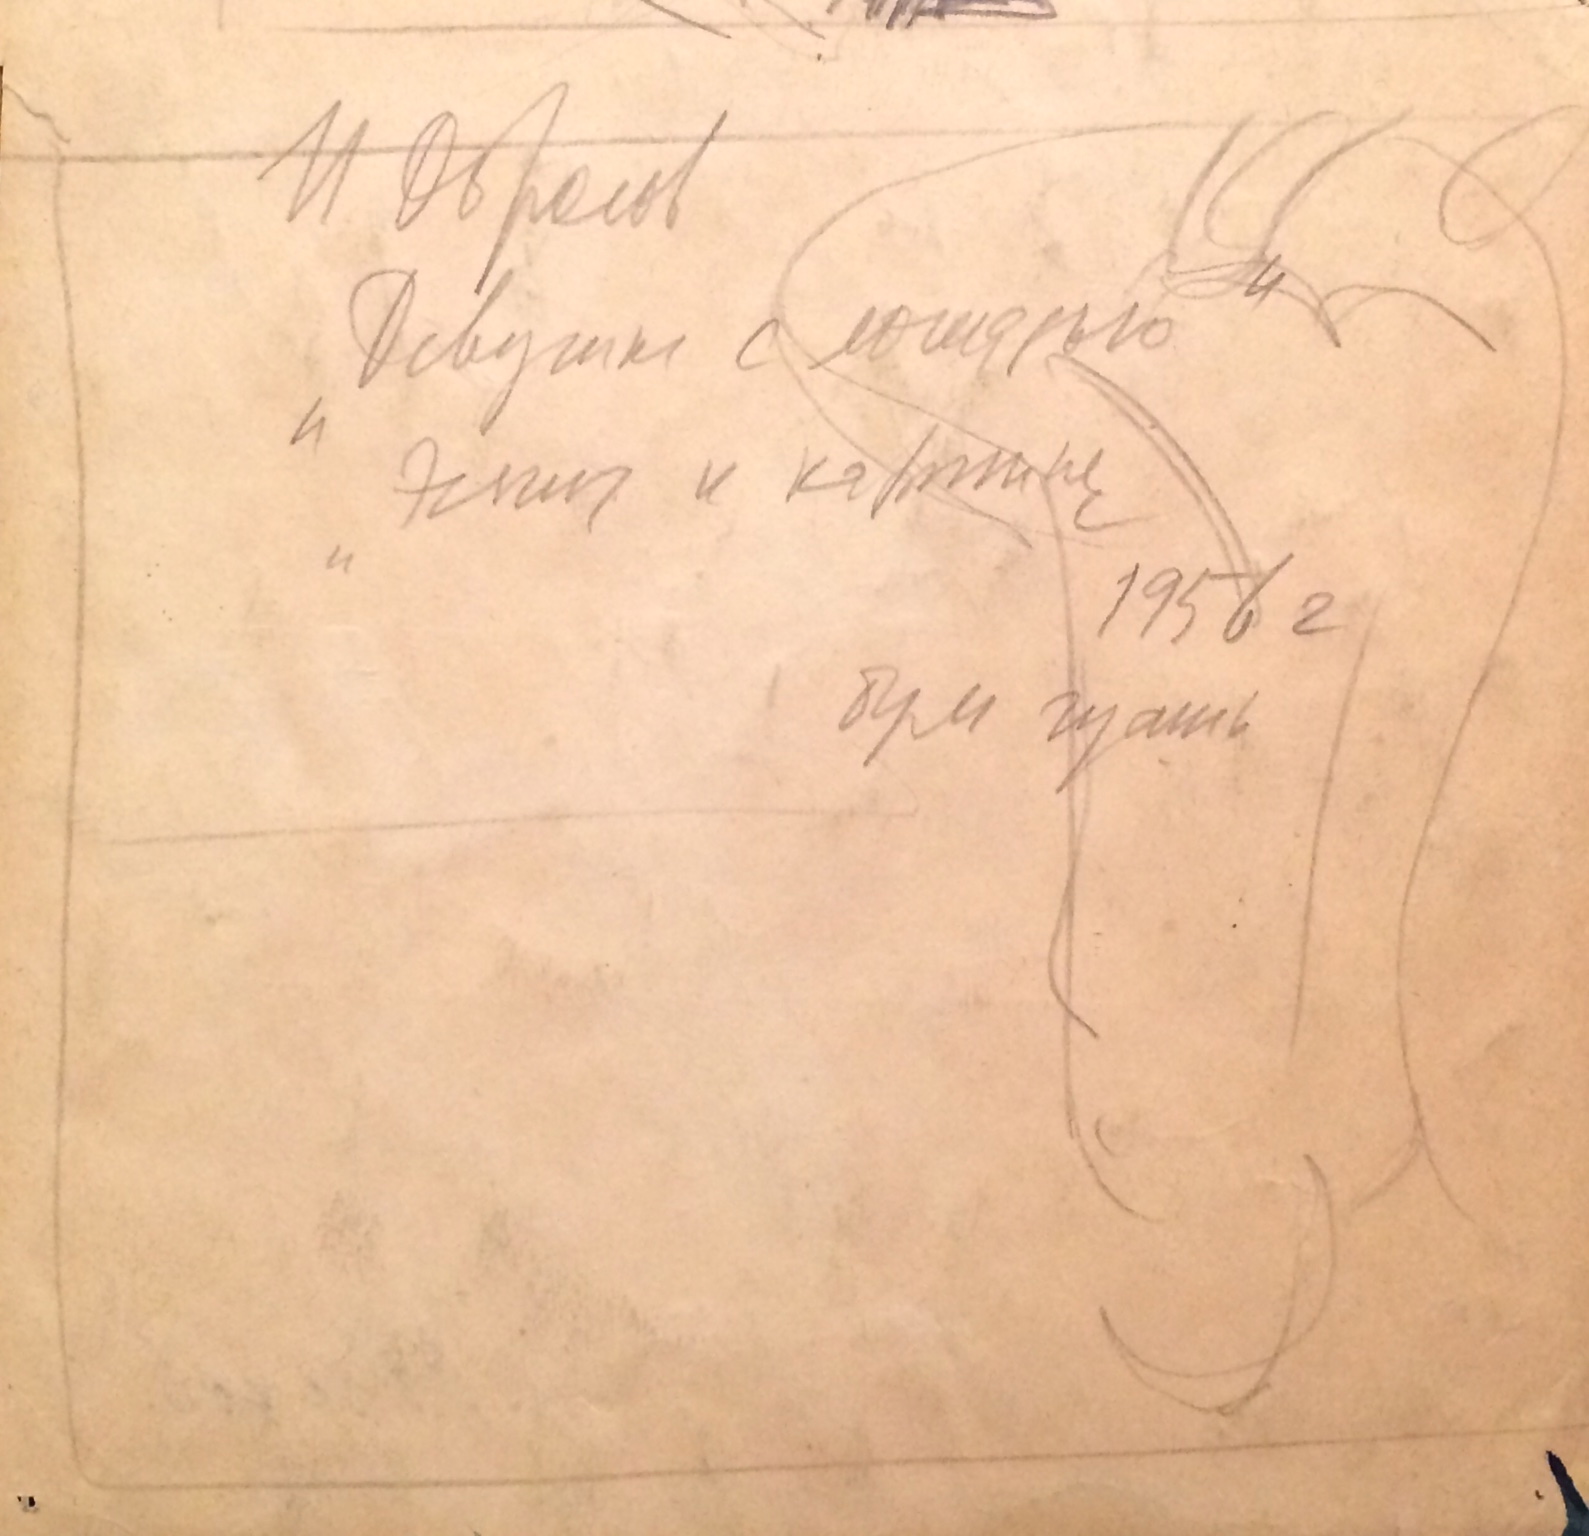 И Обросов
Девушка с лошадью"
"
Эскиз к картине
"
1956 г
бум гуашь